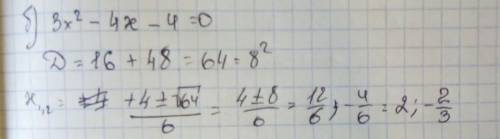 б) 3x² - 4x - 4 = 0
D = 16 + 48 = 64 = 8²
x₁,₂ = +4 ± √64 / 6 = 4 ± 8 / 6 = 12 / 6 ; - 4 / 6 = 2 ; - 2 / 3